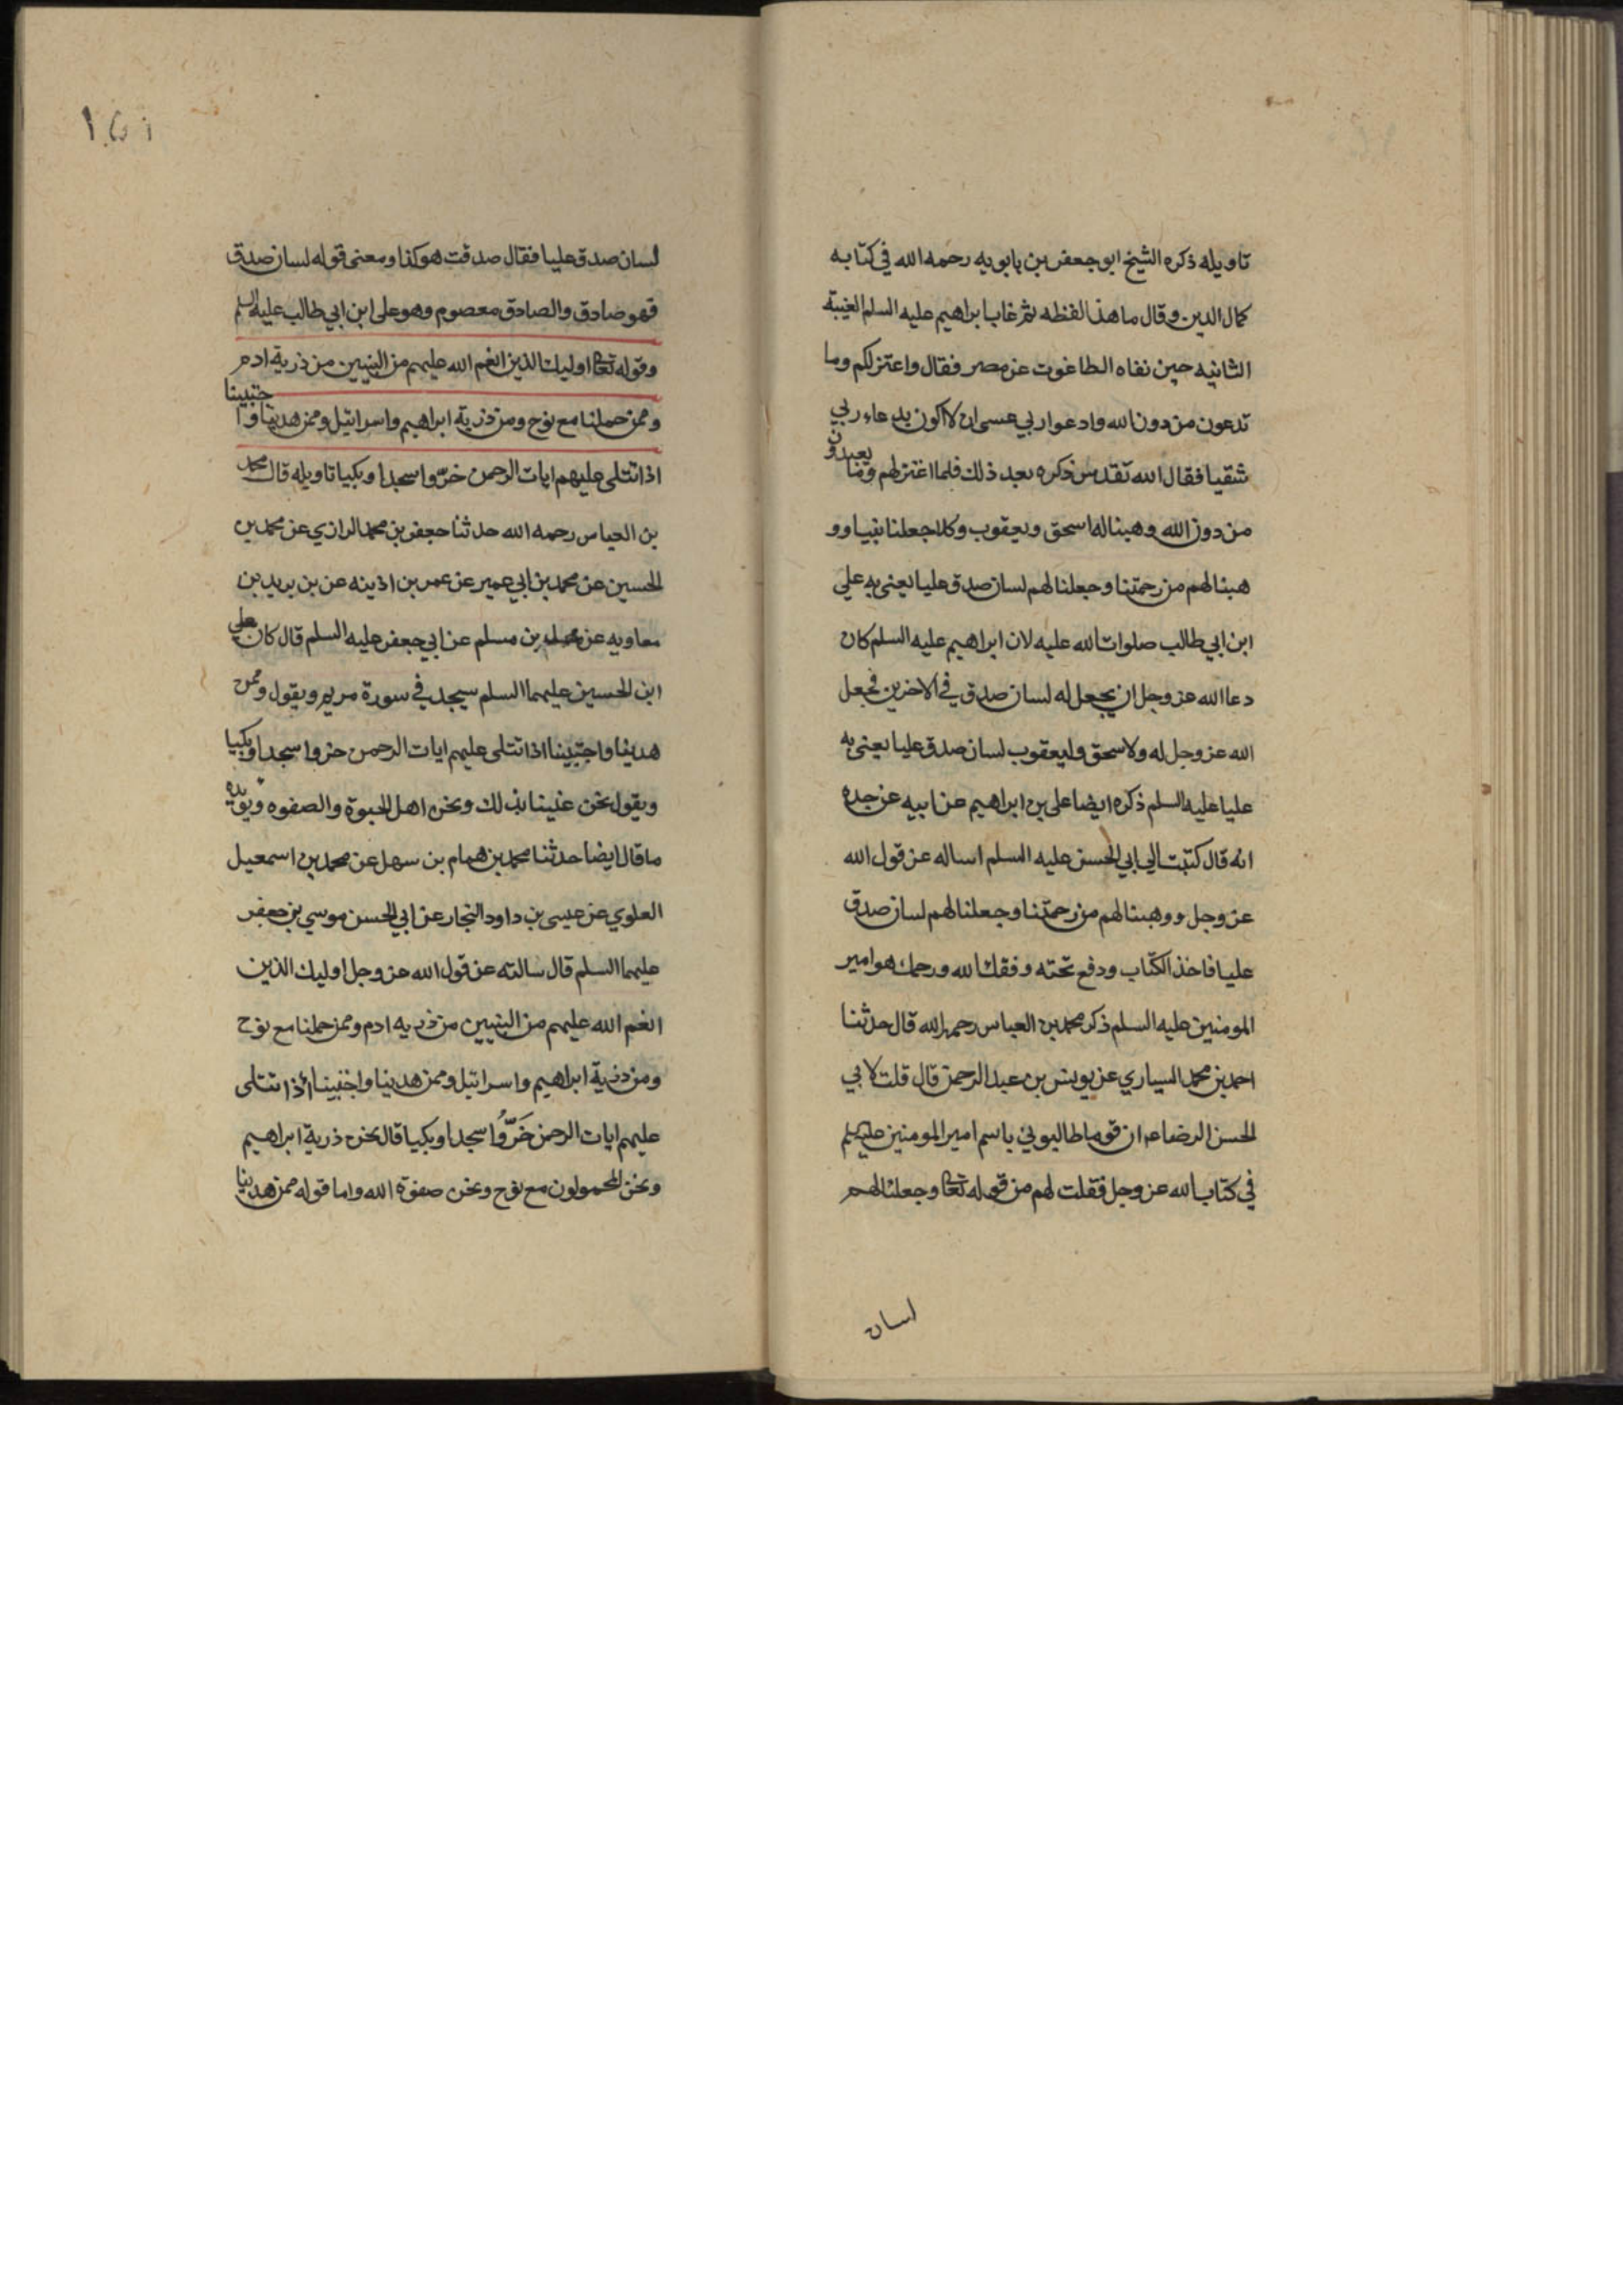 تاويله ذكره الشيخ ابو جعفر بن بابويه رحمه الله في كتابه
كمال الدين وقال ما هذا لفظه ثم غاب ابراهيم عليه السلم الغيبة
الثانيه حين نفاه الطاغوت عن مصر فقال واعتزلكم وما
تدعون من دون الله وادعوا ربي عسى ان لا اكون بدعاء ربي
شقيا فقال الله تقدس ذكره بعد ذلك فلما اعتزلهم وما يعبدون
من دون الله وهبنا له اسحق ويعقوب وكلا جعلنا نبيا وو
هبنا لهم من رحمتنا وجعلنا لهم لسان صدق عليا يعنى به علي
ابن ابي طالب صلوات الله عليه لان ابراهيم عليه السلم كان
دعا الله عز وجل ان يجعل له لسان صدق في الاخرين فجعل
الله عز وجل له ولاسحق وليعقوب لسان صدق عليا يعنى به
عليا عليه السلم ذكره ايضا على بن ابراهيم عن ابيه عن جده
انه قال كتبت الى ابي الحسن عليه السلم اساله عن قول الله
عز وجل ووهبنا لهم من رحمتنا وجعلنا لهم لسان صدق
عليا فاخذ الكتاب ودفع تحته وفقك الله ورحمك هو امير
المومنين عليه السلم ذكر محمد بن العباس رحمه الله قال حدثنا
احمد بن محمد السياري عن يونس بن عبد الرحمن قال قلت لابي
الحسن الرضا عم ان قوما طالبوني باسم امير المومنين عليه السلم
في كتاب الله عز وجل فقلت لهم من قوله تعالى وجعلنا لهم
لسان
١٥١
لسان صدق عليا فقال صدقت هو كذا ومعنى قوله لسان صدق
فهو صادق والصادق معصوم وهو على ابن ابي طالب عليه السلم
وقوله تعالى اوليك الذين انعم الله عليهم من النبيين من ذرية ادم
وممن حملنا مع نوح ومن ذرية ابراهيم واسرائيل وممن هدينا واجتبينا
اذا تتلى عليهم ايات الرحمن خرّوا سجدا وبكيا تاويله قال محمد
بن العباس رحمه الله حدثنا جعفر بن محمد الرازي عن محمد بن
الحسين عن محمد بن ابي عمير عن عمر بن اذينه عن بن بريد بن
معاويه عن محمد بن مسلم عن ابي جعفر عليه السلم قال كان علي
ابن الحسين عليهما السلم سيجد في سورة مريم ويقول وممن
هدينا واجتبينا اذا تتلى عليهم ايات الرحمن خروا سجدا وبكيا
ويقول نحن عنينا بذلك ونحن اهل الحبوة والصفوه ويويده
ما قال ايضا حدثنا محمد بن همام بن سهل عن محمد بن اسمعيل
العلوي عن عيسى بن داود النجار عن ابي الحسن موسي بن جعفر
عليهما السلم قال سالته عن قول الله عز وجل اوليك الذين
انعم الله عليهم من النبيين من ذريه ادم وممن حملنا مع نوح
ومن ذرية ابراهيم واسرائيل وممن هدينا واجتبينا اذا تتلى
عليهم ايات الرحمن خَرُّوا سجدا وبكيا قال نحن ذرية ابراهيم
ونحن المحمولون مع نوح ونحن صفوة الله واما قوله ممن هدينا